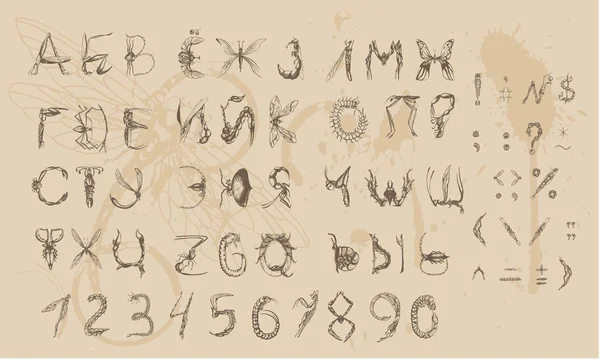 А Б В Ё Ж З Л М Н ! № $
Г Д Е И Й К О П Р : ; ?
С Т У Э Ю Я Ч Ш Щ
Ф Х Ц Z G Ъ Ы Ь
1 2 3 4 5 6 7 8 9 0